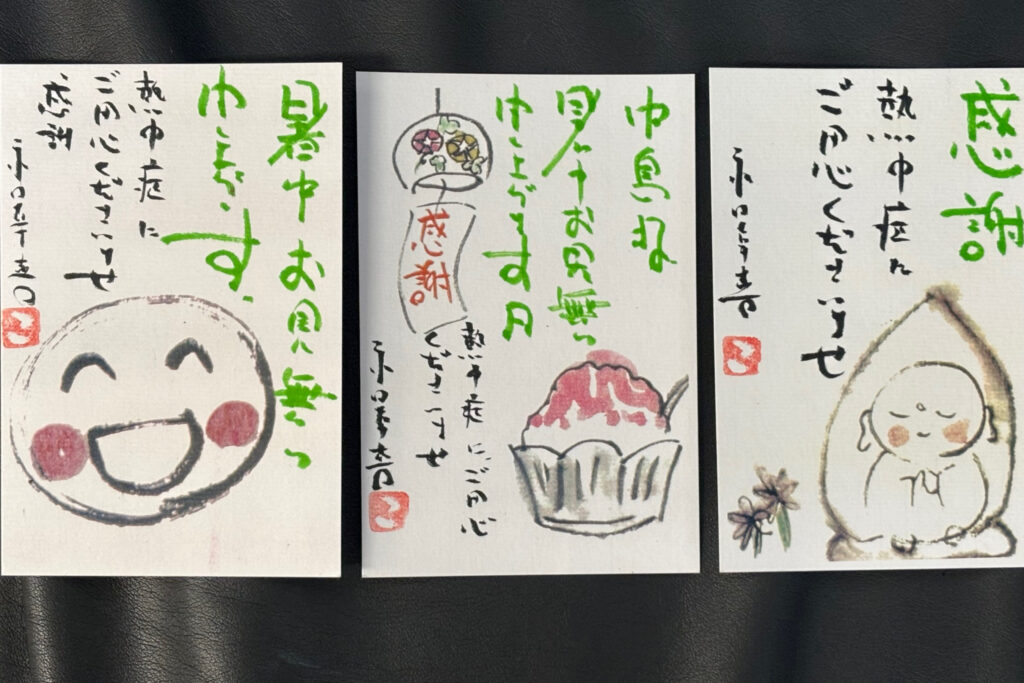 暑中お見舞い
申し上げます。
熱中症に
ご用心くださいませ
感謝
暑中お見舞い
申し上げます
感謝。
熱中症にご用心
くださいませ
感謝
熱中症に
ご用心くださいませ